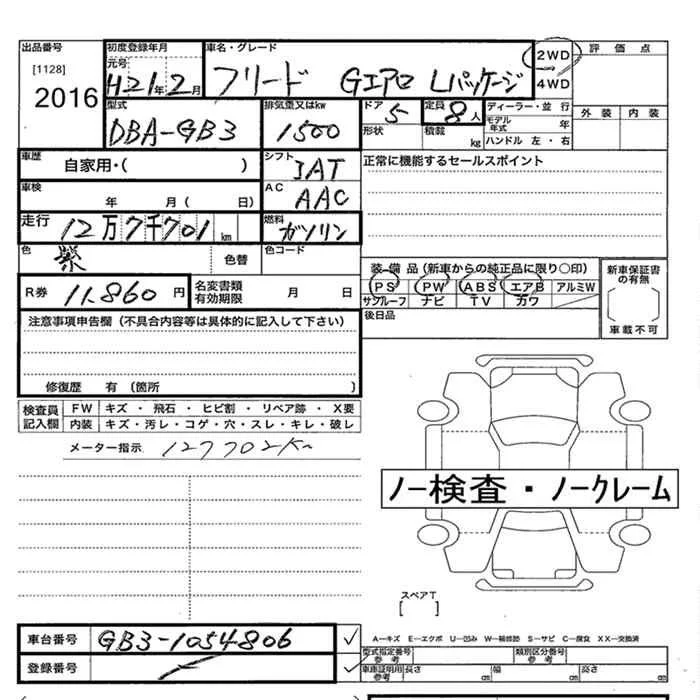 出品番号 初度登録年月 車名・グレード 2WD 評価点
[1128] 元号 H21年2月 フリード Gエアロ Lパッケージ 4WD
2016 型式 排気量又はkw ドア 5 定員 8人 ディーラー・並行 外装 内装
DBA-GB3 1500 形状 積載 kg モデル年式 年
ハンドル 左・右
車歴 自家用・( ) シフト IAT 正常に機能するセールスポイント
車検 年 月( 日) AC AAC
走行 12万7千701km 燃料 ガソリン
色 紫 色替 色コード 装備品(新車からの純正品に限り○印) 新車保証書の有無
R券 11,860円 名変書類有効期限 月 日 PS PW ABS エアB アルミW
サンルーフ ナビ TV カワ
注意事項申告欄(不具合内容等は具体的に記入して下さい) 後日品 車載不可
修復歴 有(箇所 )
検査員記入欄 FW キズ・飛石・ヒビ割・リペア跡・X要
内装 キズ・汚レ・コゲ・穴・スレ・キレ・破レ
メーター指示 127702K
ノー検査・ノークレーム
スペアT
[ ]
車台番号 GB3-1054806 ✓ A－キズ E－エクボ U－凹ミ W－補修跡 S－サビ C－腐食 XX－交換済
型式指定番号 参考 類別区分番号 参考
登録番号 ✓ 車庫証明用参考 長さ cm 幅 cm 高さ cm